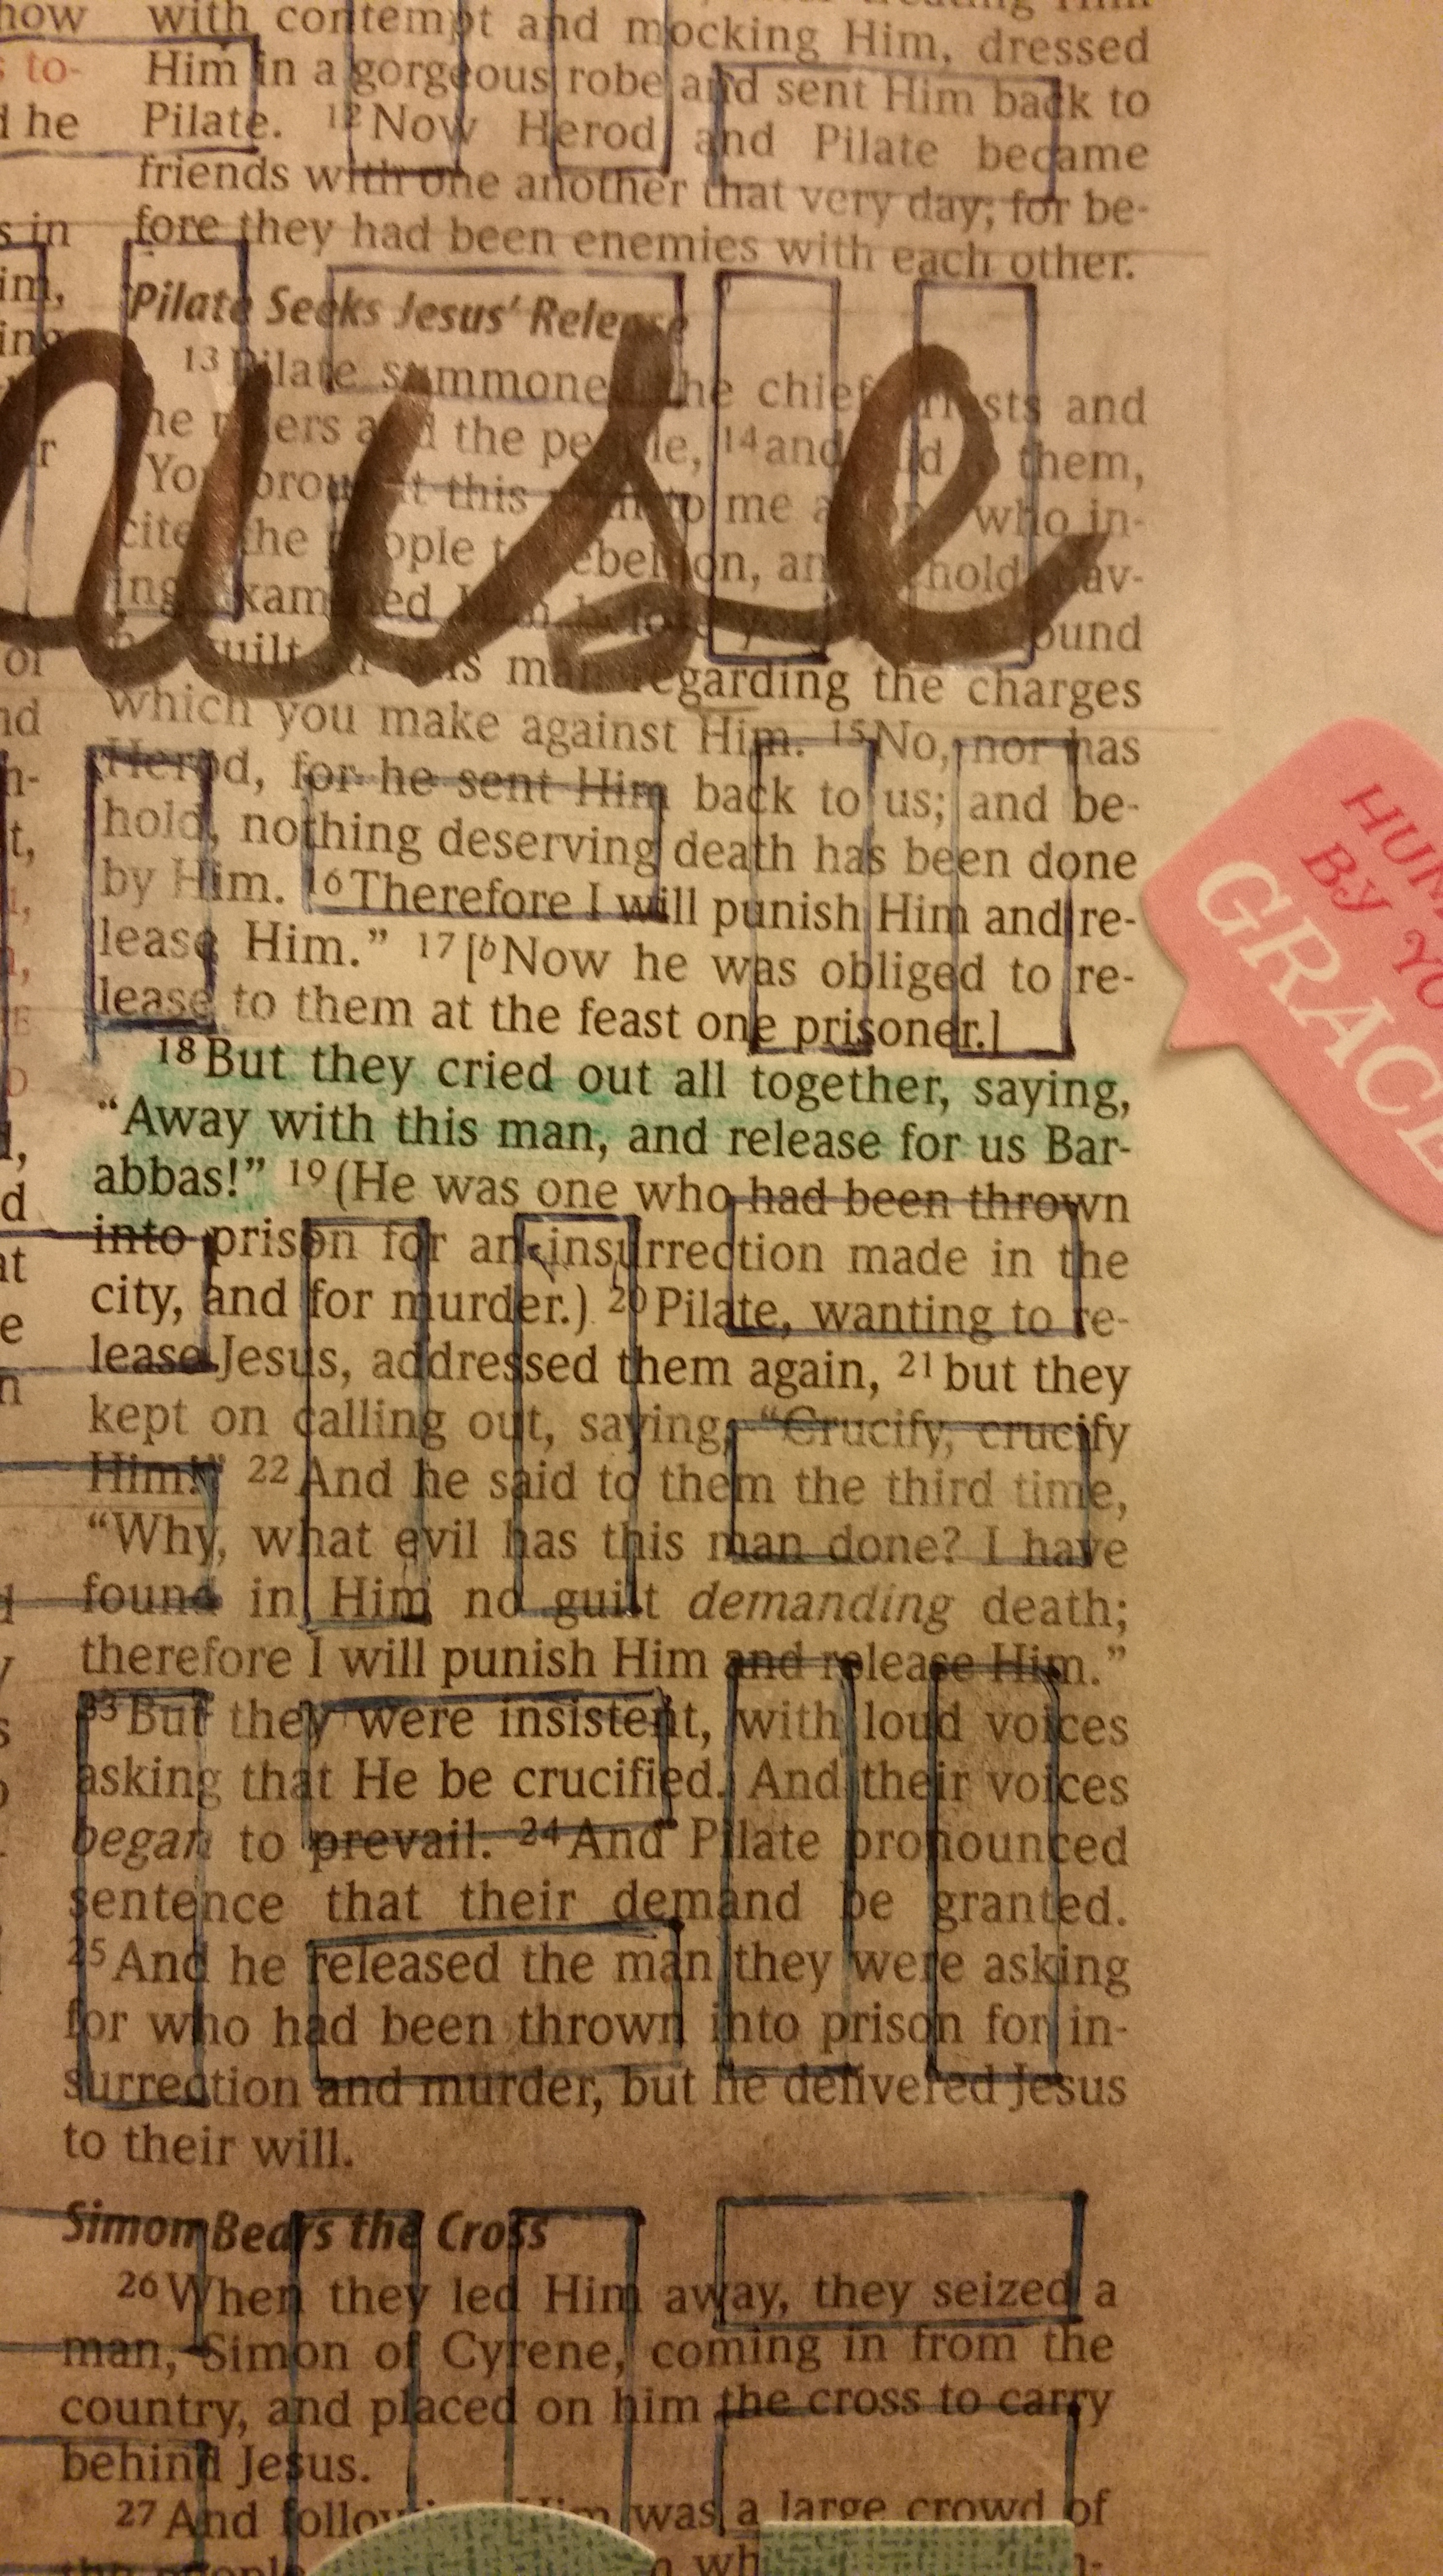 how
s to-
d he
s in
im,
ing
of
nd
n-
t,
with contempt and mocking Him, dressed
Him in a gorgeous robe and sent Him back to
Pilate. 12 Now Herod and Pilate became
friends with one another that very day; for be-
fore they had been enemies with each other.
Pilate Seeks Jesus' Release
13 Pilate summoned the chief priests and
the rulers and the people, 14 and said to them,
"You brought this man to me as one who in-
cites the people to rebellion, and behold, hav-
ing examined Him before you, I have found
no guilt in this man regarding the charges
which you make against Him. 15 No, nor has
Herod, for he sent Him back to us; and be-
hold, nothing deserving death has been done
by Him. 16 Therefore I will punish Him and re-
lease Him." 17 [b Now he was obliged to re-
lease to them at the feast one prisoner.]
18 But they cried out all together, saying,
"Away with this man, and release for us Bar-
abbas!" 19 (He was one who had been thrown
into prison for an insurrection made in the
city, and for murder.) 20 Pilate, wanting to re-
lease Jesus, addressed them again, 21 but they
kept on calling out, saying, "Crucify, crucify
Him!" 22 And he said to them the third time,
"Why, what evil has this man done? I have
found in Him no guilt demanding death;
therefore I will punish Him and release Him."
23 But they were insistent, with loud voices
asking that He be crucified. And their voices
began to prevail. 24 And Pilate pronounced
sentence that their demand be granted.
25 And he released the man they were asking
for who had been thrown into prison for in-
surrection and murder, but he delivered Jesus
to their will.
Simon Bears the Cross
26 When they led Him away, they seized a
man, Simon of Cyrene, coming in from the
country, and placed on him the cross to carry
behind Jesus.
27 And following Him was a large crowd of
the people
use
BY YO
GRACE